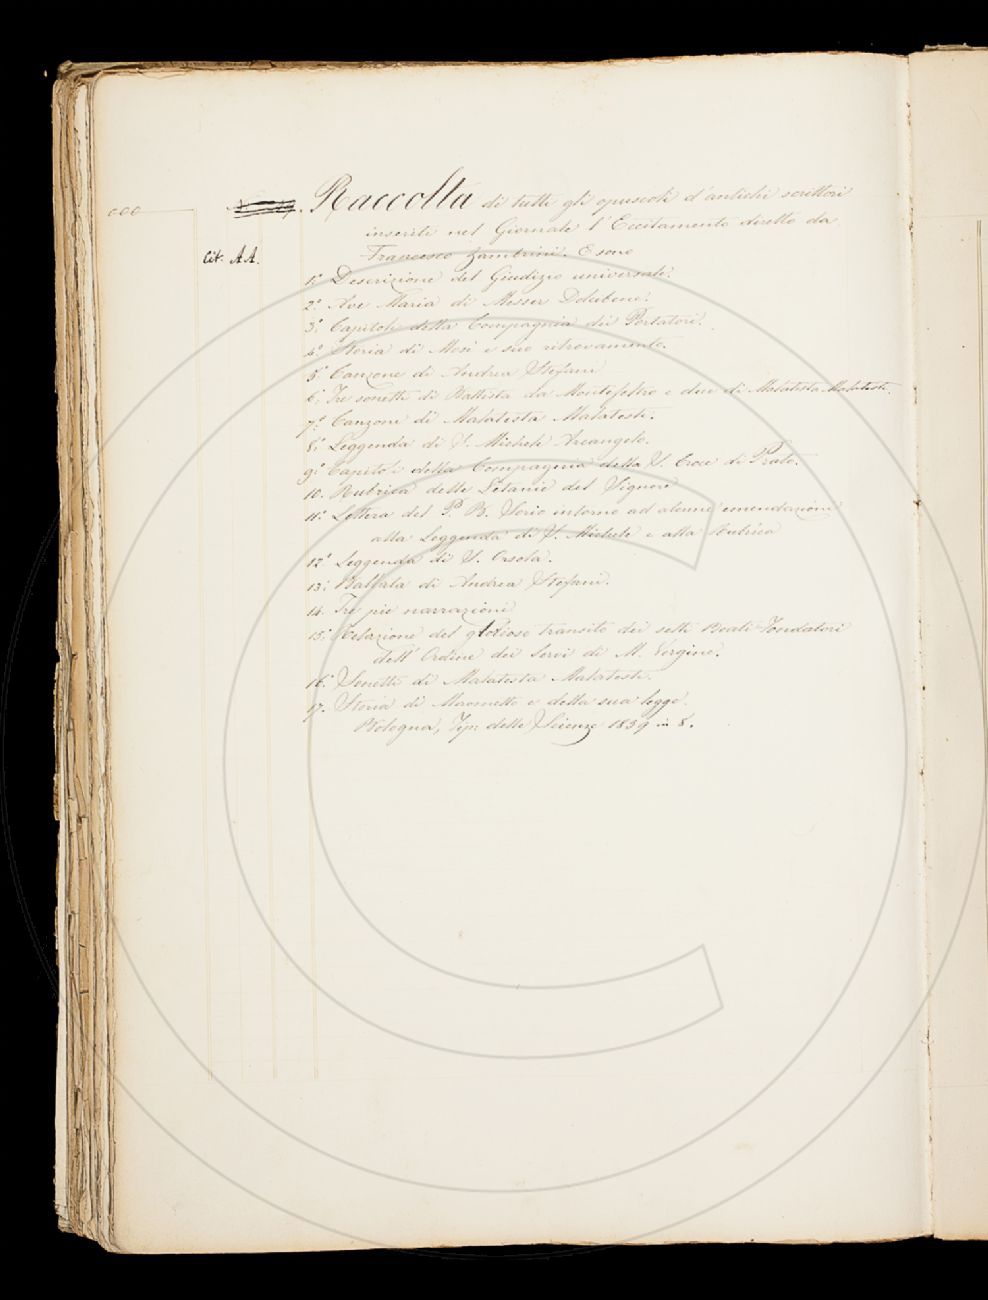 Raccolta di tutti gli opuscoli d'antichi scrittori
inseriti nel Giornale l'Eccitamento diretto da
Cit. AA.
Francesco Zambrini. E sono
1.° Descrizione del Giudizio universale.
2.° Ave Maria di Messer
3.° Capitoli della Compagnia dei Portatori.
4.° Storia di Mosè e suo ritrovamento.
5.° Canzone di Andrea Stefani
6.° Tre sonetti di Battista da Montefeltro e due di Malatesta Malatesti.
7.° Canzone di Malatesta Malatesti.
8.° Leggenda di S. Michele Arcangelo.
9.° Capitoli della Compagnia della S. Croce di Prato.
10. Rubrica delle Letanie del Signore
11.° Lettera del P. B. Sorio intorno ad alcune emendazioni
alla Leggenda di S. Michele e alla Rubrica
12.° Leggenda di S. Orsola.
13.° Ballata di Andrea Stefani.
14. Tre pie narrazioni
15.° Relazione del glorioso transito dei sette Beati Fondatori
dell'Ordine dei Servi di M. Vergine.
16.° Sonetti di Malatesta Malatesti.
17. Storia di Maometto e della sua legge.
Bologna, Tip. delle Scienze 1859 in 8.